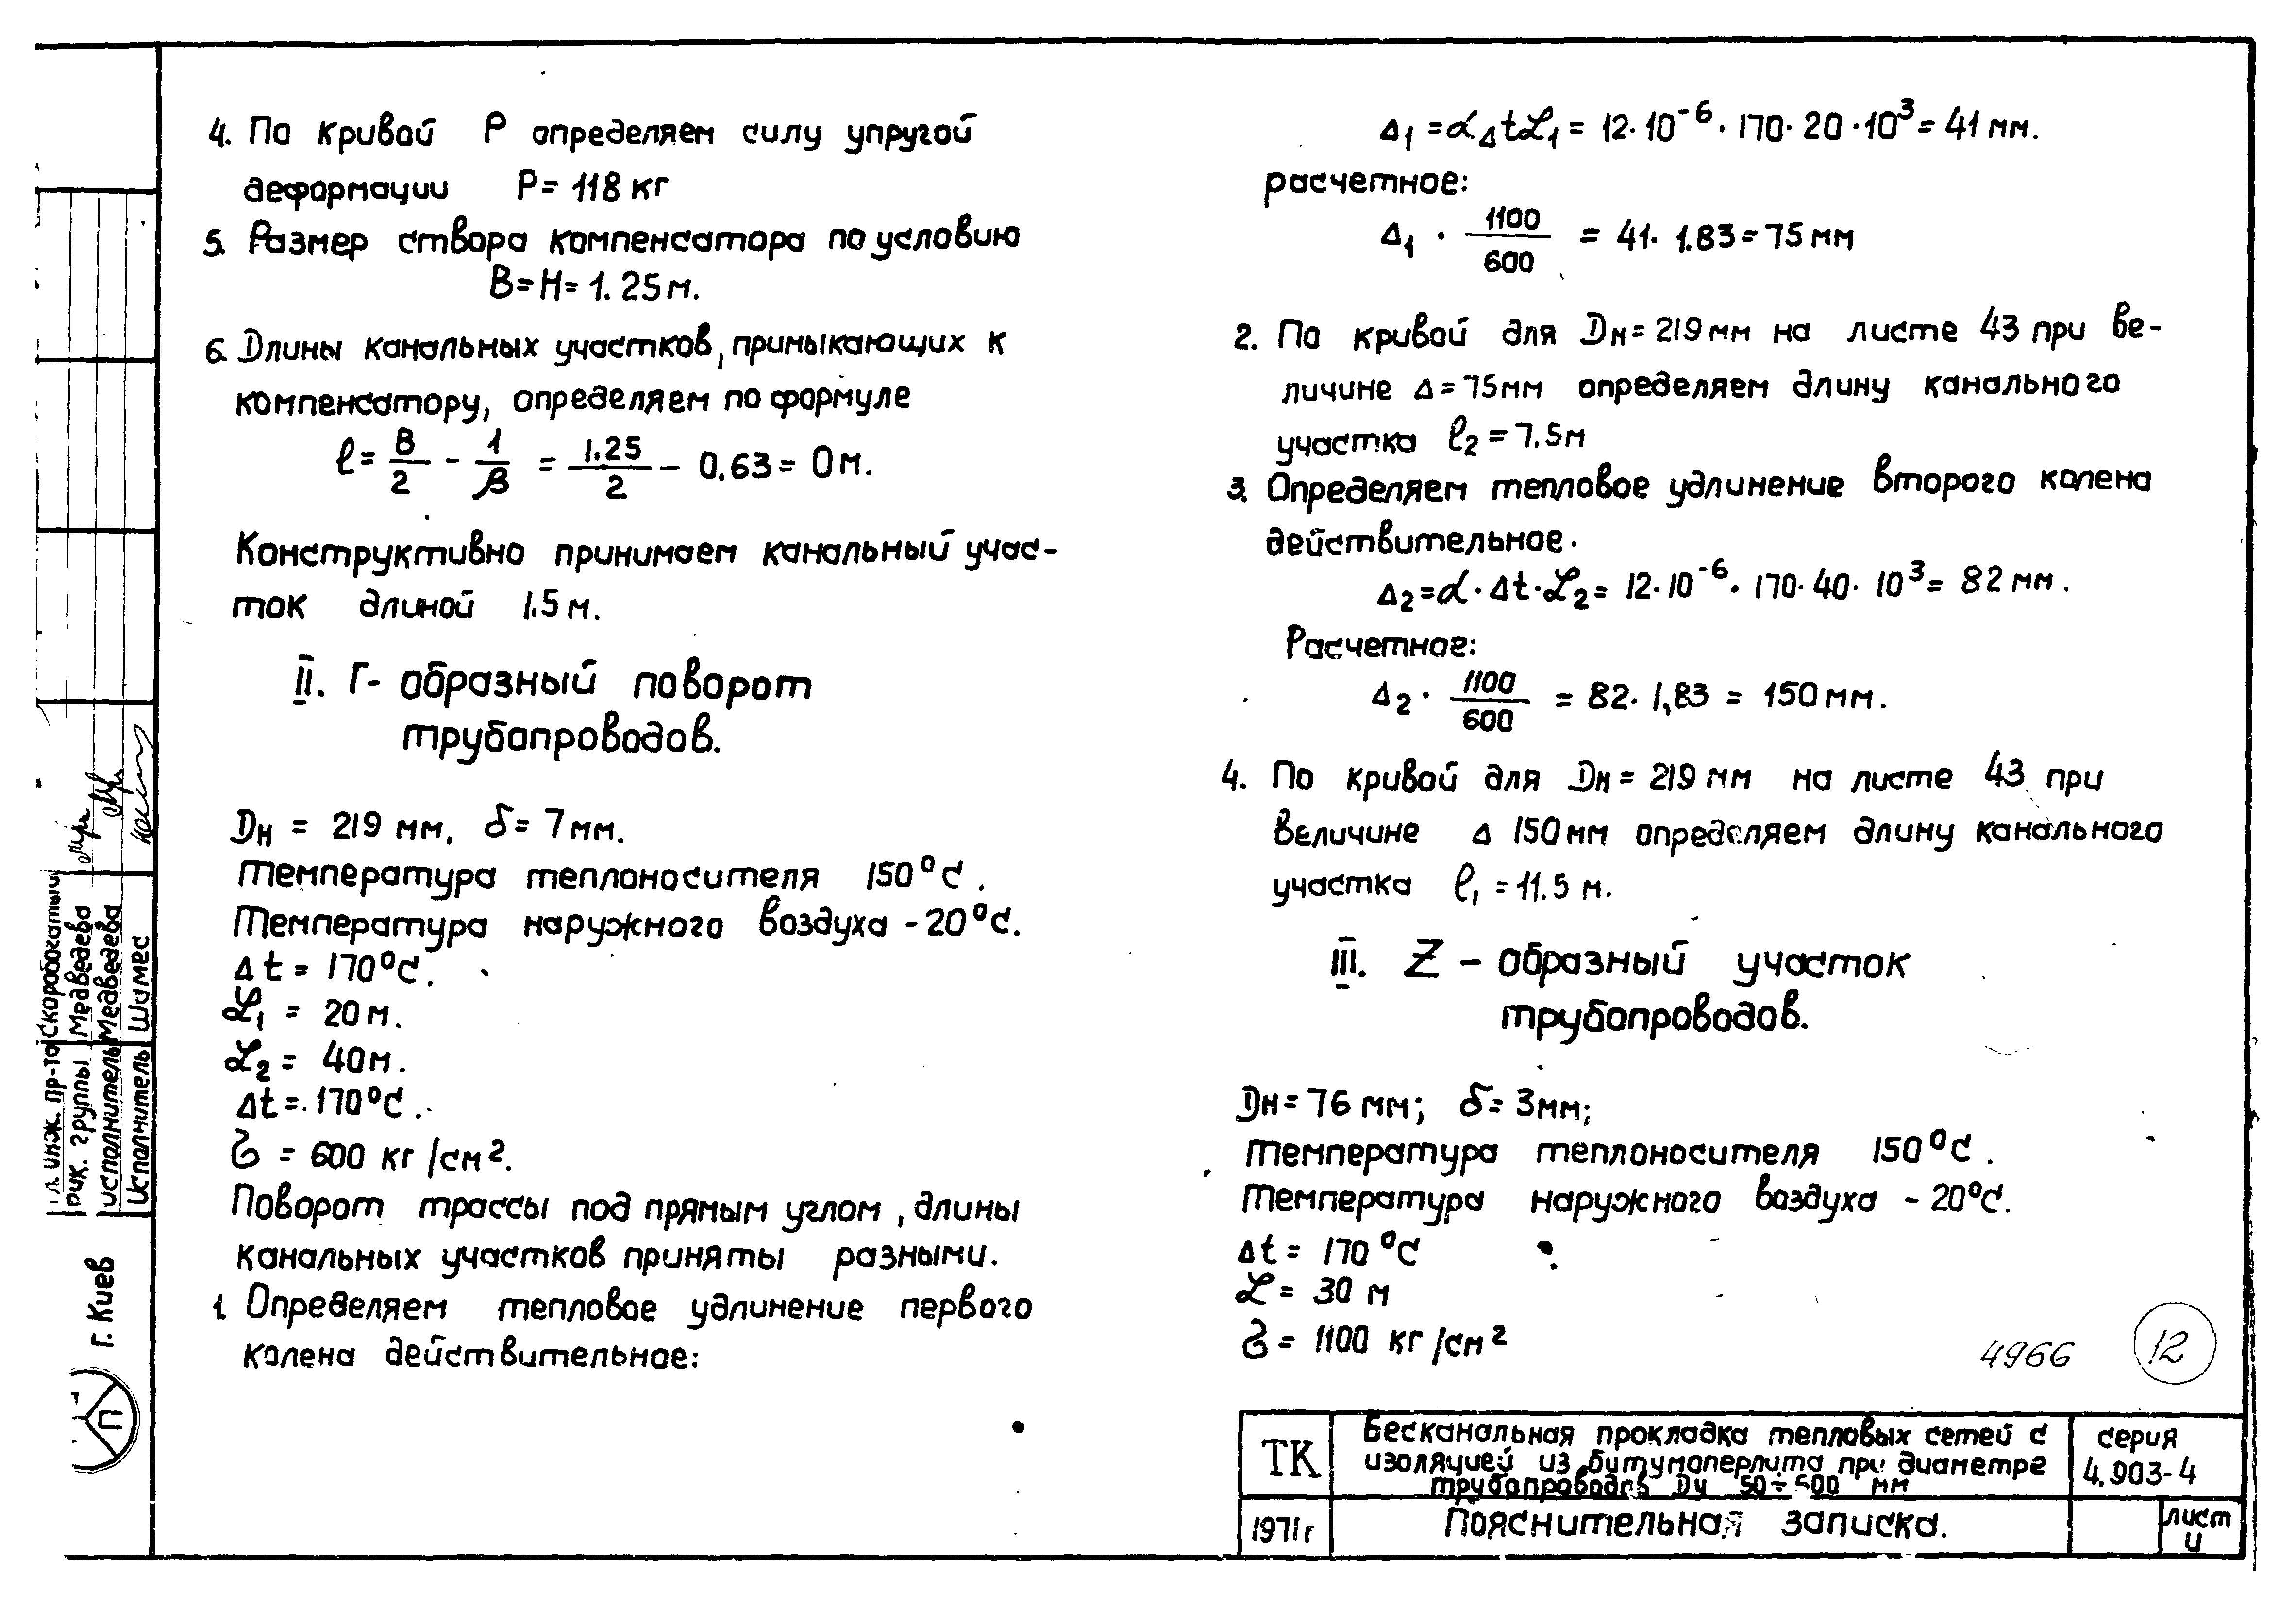 4. По кривой P определяем силу упругой
деформации P = 118 кг
5. Размер створа компенсатора по условию
B = H = 1.25 м.
6. Длины канальных участков, примыкающих к
компенсатору, определяем по формуле
ℓ = B/2 - 1/β = 1.25/2 - 0.63 = 0 м.
Конструктивно принимаем канальный учас-
ток длиной 1.5 м.
II. Г- образный поворот
трубопроводов.
Dн = 219 мм, δ = 7 мм.
Температура теплоносителя 150°C.
Температура наружного воздуха -20°C.
Δt = 170°C.
ℒ1 = 20 м.
ℒ2 = 40 м.
Δt = 170°C.
σ = 600 кг/см².
Поворот трассы под прямым углом, длины
канальных участков приняты разными.
1. Определяем тепловое удлинение первого
колена действительное:
Δ1 = α Δtℒ1 = 12·10⁻⁶·170·20·10³ = 41 мм.
расчетное:
Δ1 · 1100/600 = 41·1.83 = 75 мм
2. По кривой для Dн = 219 мм на листе 43 при ве-
личине Δ = 75 мм определяем длину канального
участка ℓ2 = 7.5 м
3. Определяем тепловое удлинение второго колена
действительное.
Δ2 = α·Δt·ℒ2 = 12·10⁻⁶·170·40·10³ = 82 мм.
Расчетное:
Δ2 · 1100/600 = 82·1,83 = 150 мм.
4. По кривой для Dн = 219 мм на листе 43 при
величине Δ 150 мм определяем длину канального
участка ℓ1 = 11.5 м.
III. Z - образный участок
трубопроводов.
Dн = 76 мм; δ = 3 мм;
Температура теплоносителя 150°C.
Температура наружного воздуха - 20°C.
Δt = 170°C
ℒ = 30 м
σ = 1100 кг/см²
4966
12
ТК
Бесканальная прокладка тепловых сетей с
изоляцией из битумоперлита при диаметре
трубопроводов Dу 50÷500 мм
серия
4.903-4
1971г
Пояснительная записка.
лист
И
инж. пр-та Скоробогатый
рук. группы Медведева
исполнитель Медведева
Исполнитель Шамес
г. Киев
П